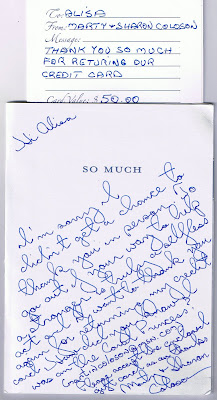 To: ALISA
From: MARTY & SHARON COLOSON
Message:
THANK YOU SO MUCH
FOR RETURING OUR
CREDIT CARD
Card Value: $50.00
Hi Alisa
SO MUCH
I'm sorry I
didn't get a chance to
thank you in person. To
go out of your way to help
a stranger is truly a selfless
act. I want to thank you
again for returning my credit
card. You didn't know I
was on the
please accept as my thanks
Marty & Sharon
Coloson